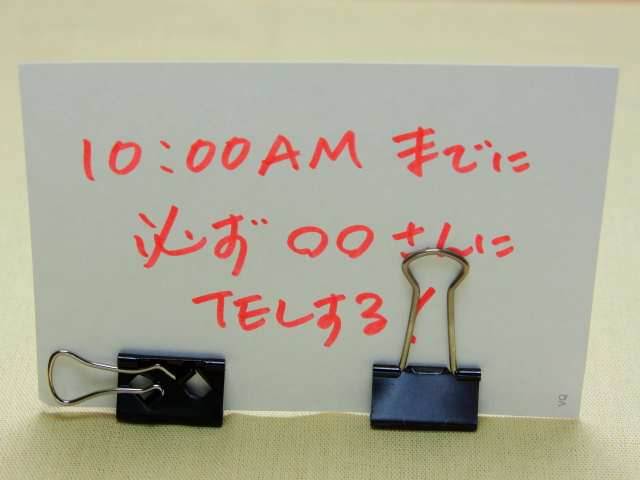 10:00AMまでに
必ず〇〇さんに
TELする!
VQ